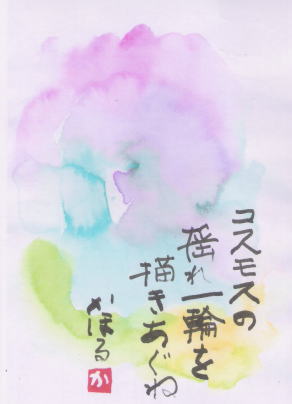 コスモスの
揺れ一輪を
描きあぐね
かほる
か